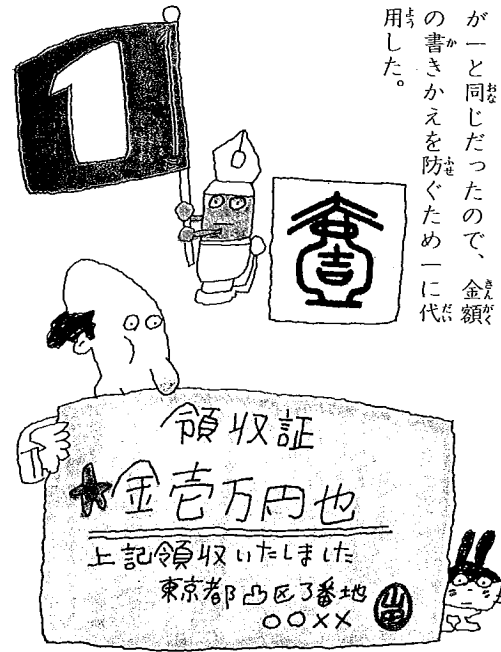 が一と同じだったので、金額
の書きかえを防ぐため一に代
用した。
1
壹
領収証
★金壱万円也
上記領収いたしました
東京都凸区3番地
○○××
山田